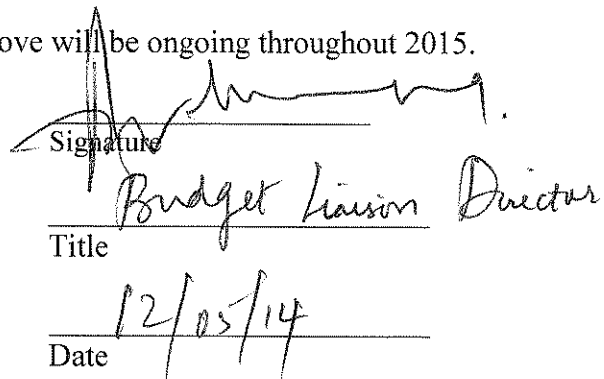 ove will be ongoing throughout 2015.
Signature
Budget Liaison Director
Title
12/05/14
Date